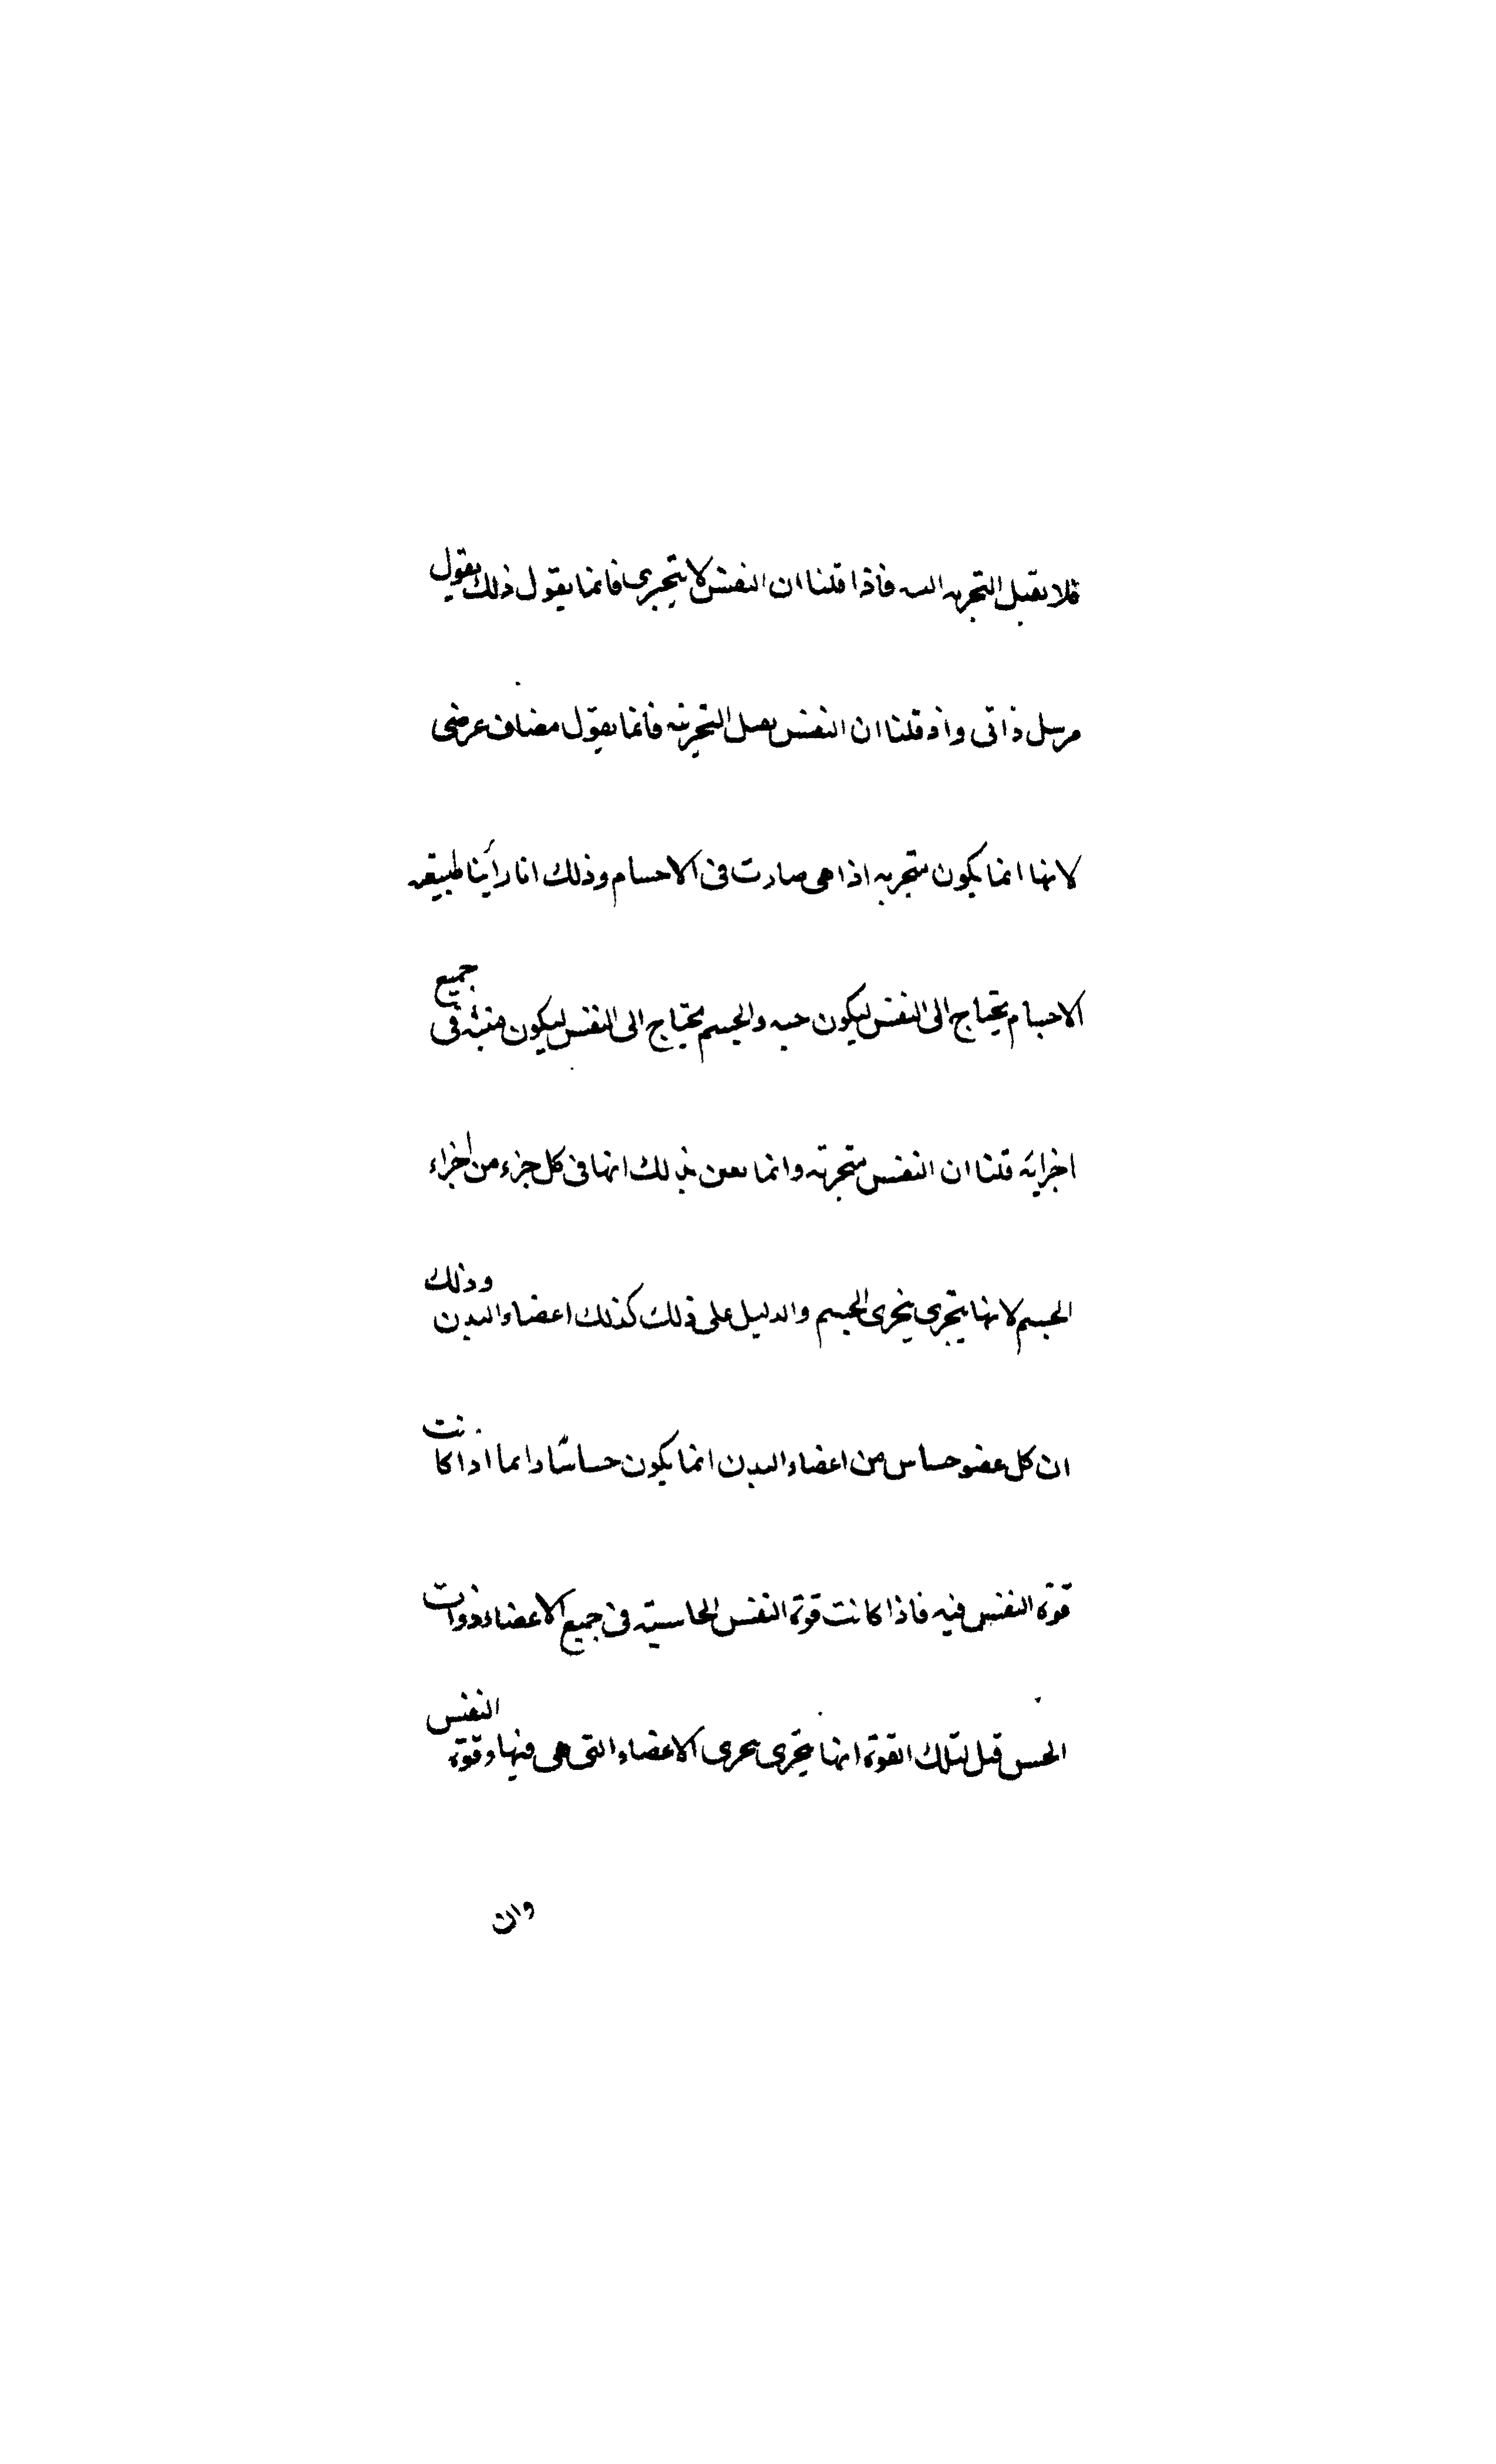 فلا يقبل التجزية البتة فاذا قلنا ان النفس لا يتجزى فانما يقول ذلك بقول
مرسل ذاتى واذ قلنا ان النفس يقبل التجزية فانما يقول مضاف عرضى
لانها انما يكون متجزية اذا هى صارت فى الاجسام وذلك انا رأينا طبيعة
الاجسام يحتاج الى النفس ليكون حيه والجسم يحتاج الى النفس ليكون منبثه فى جميع
اجزايه قلنا ان النفس متجزية وانما يعنى بذلك انها فى كل جزء من اجزاء
الجسم لانها يتجزى بتجزى الجسم والدليل على ذلك كذلك اعضاء البدن وذلك
ان كل عضو حساس من اعضاء البدن انما يكون حساسًا دايما اذا كانت
قوة النفس فيه فاذا كانت قوة النفس الحاسية فى جميع الاعضاء ذوات
الحس قيل لتلك القوة انها يتجزى بتجزى الاعضاء التى هى فيها وقوة النفس
وان